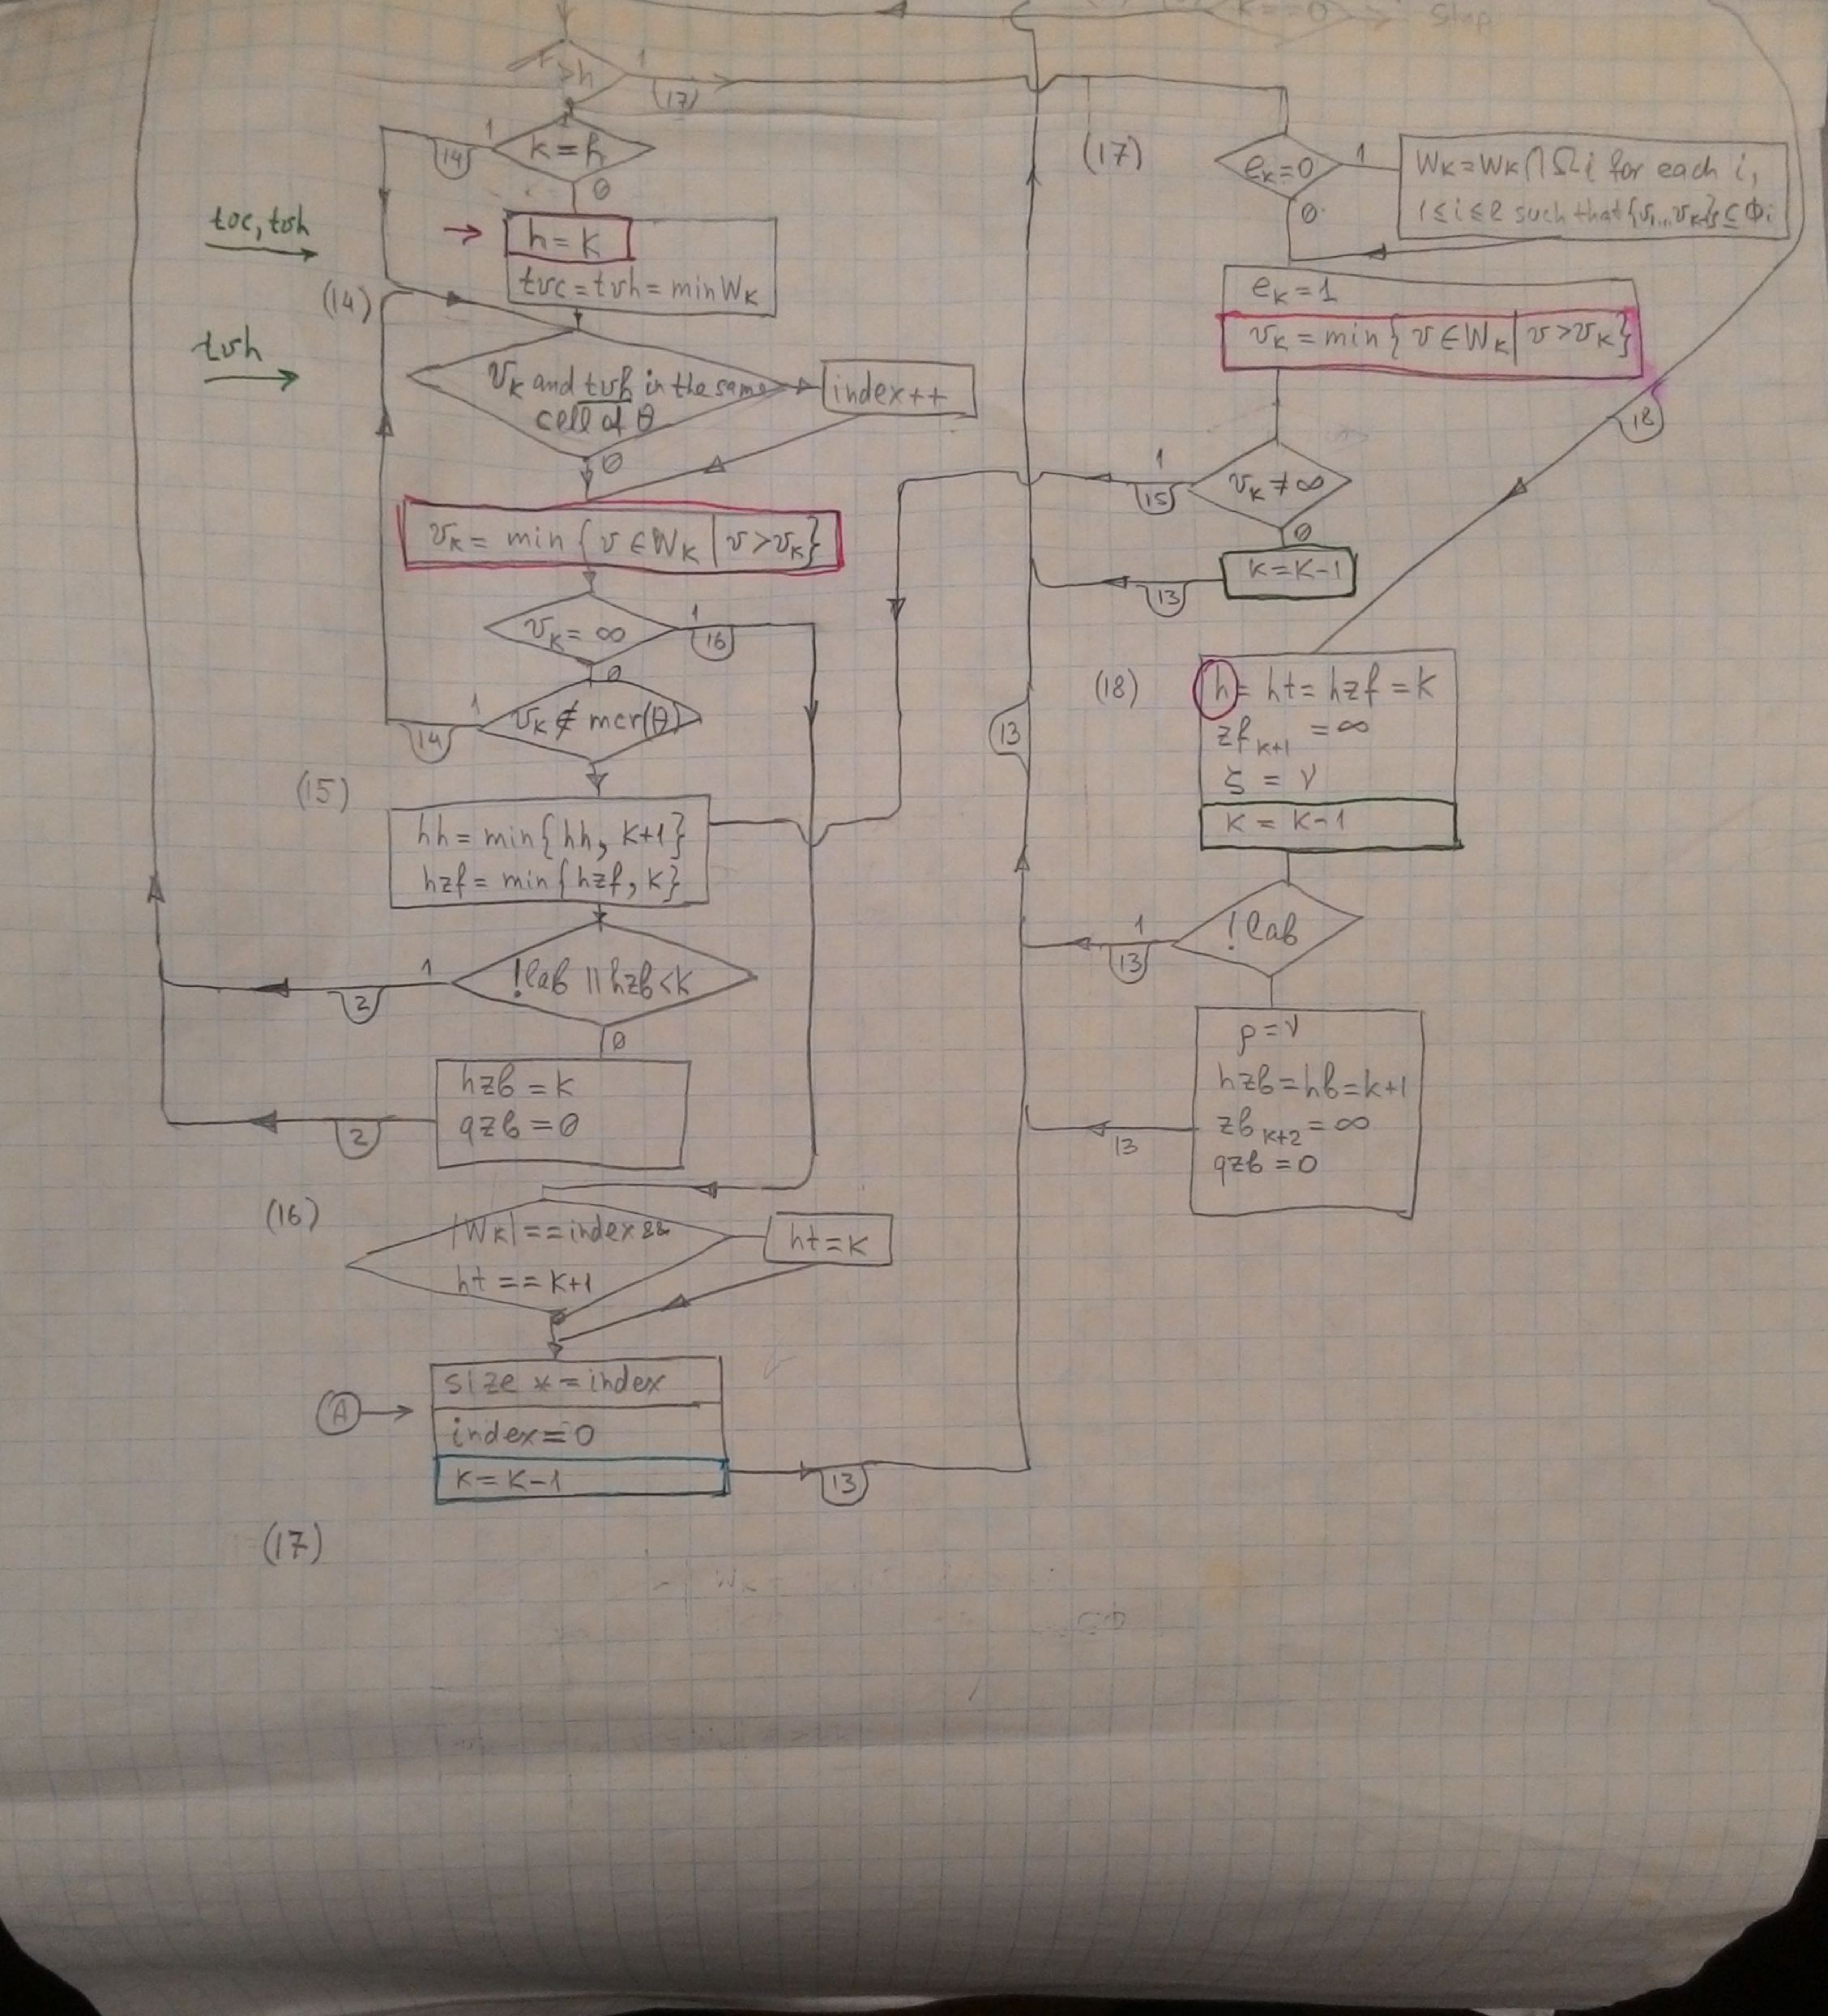 k==0
Stop
>h
1
(17)
k=h
1
14
0
h=k
tvc=tvh=minWk
tvc, tvh
(14)
tvh
vk and tvh in the same
cell of θ
index++
0
vk = min{v∈Wk|v>vk}
vk=∞
1
16
0
vk∉mcr(θ)
1
14
(15)
hh=min{hh, k+1}
hzf=min{hzf, k}
!lab || hzb<k
1
2
0
hzb=k
qzb=0
2
(16)
|Wk|==index&&
ht==k+1
ht=k
0
A
size *=index
index=0
k=k-1
13
(17)
(17)
ek=0
1
Wk=Wk∩Ωi for each i,
1≤i≤l such that {v1...vk}⊆Φi
0
ek=1
vk=min{v∈Wk|v>vk}
18
vk≠∞
1
15
0
k=k-1
13
(18)
h=ht=hzf=k
zfk+1=∞
ζ=ν
k=k-1
13
!lab
1
13
ρ=ν
hzb=hb=k+1
zbk+2=∞
qzb=0
13